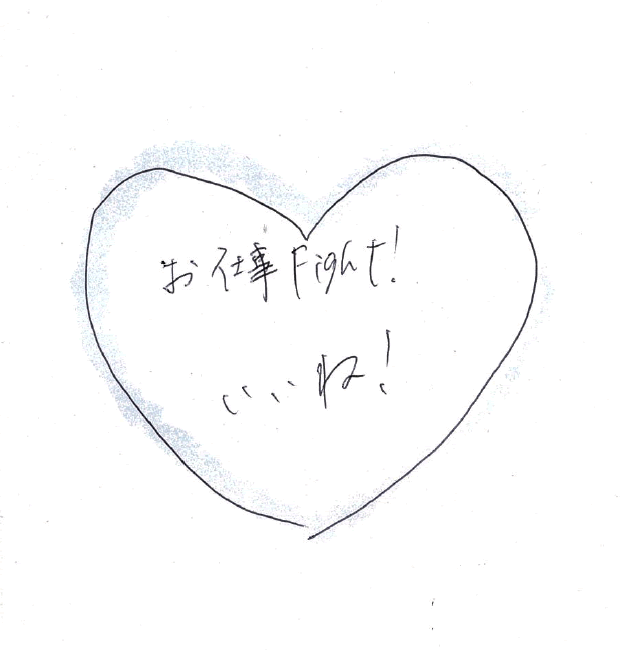 お仕事Fight!
いいね!